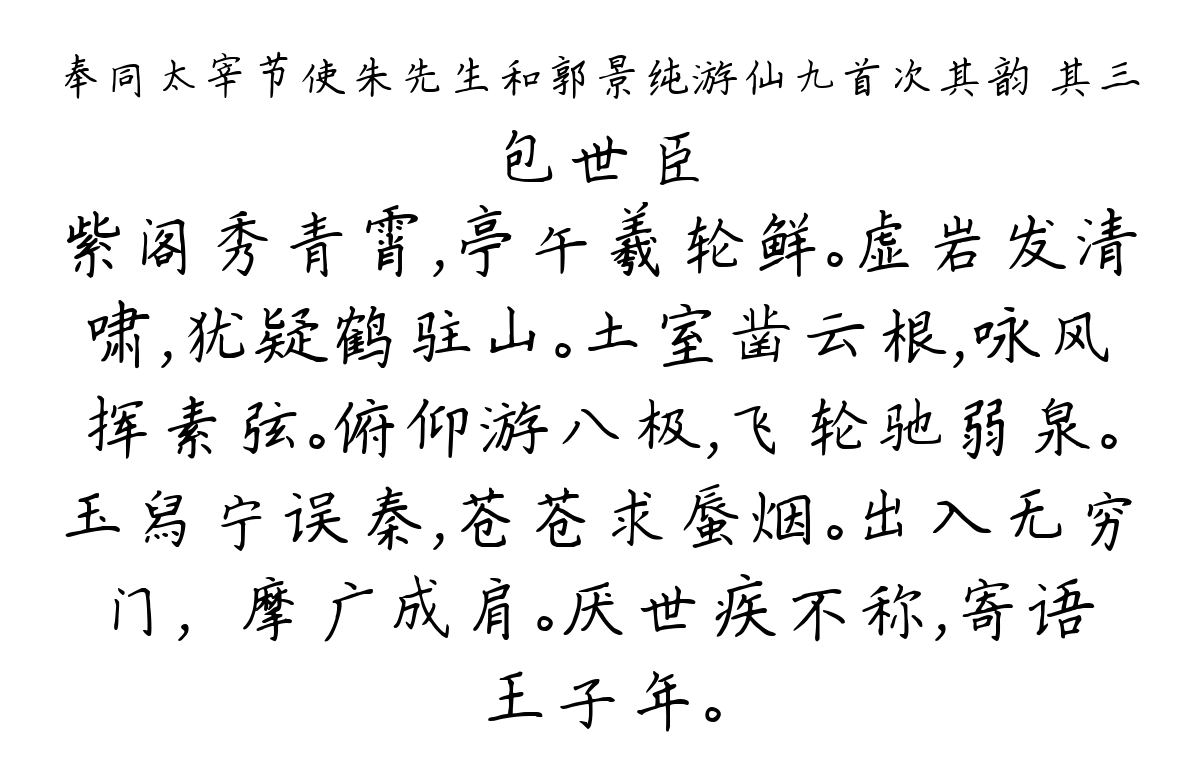 奉同太宰节使朱先生和郭景纯游仙九首次其韵 其三
包世臣
紫阁秀青霄,亭午羲轮鲜。虚岩发清
啸,犹疑鹤驻山。土室凿云根,咏风
挥素弦。俯仰游八极,飞轮驰弱泉。
玉舄宁误秦,苍苍求蜃烟。出入无穷
门，摩广成肩。厌世疾不称,寄语
王子年。